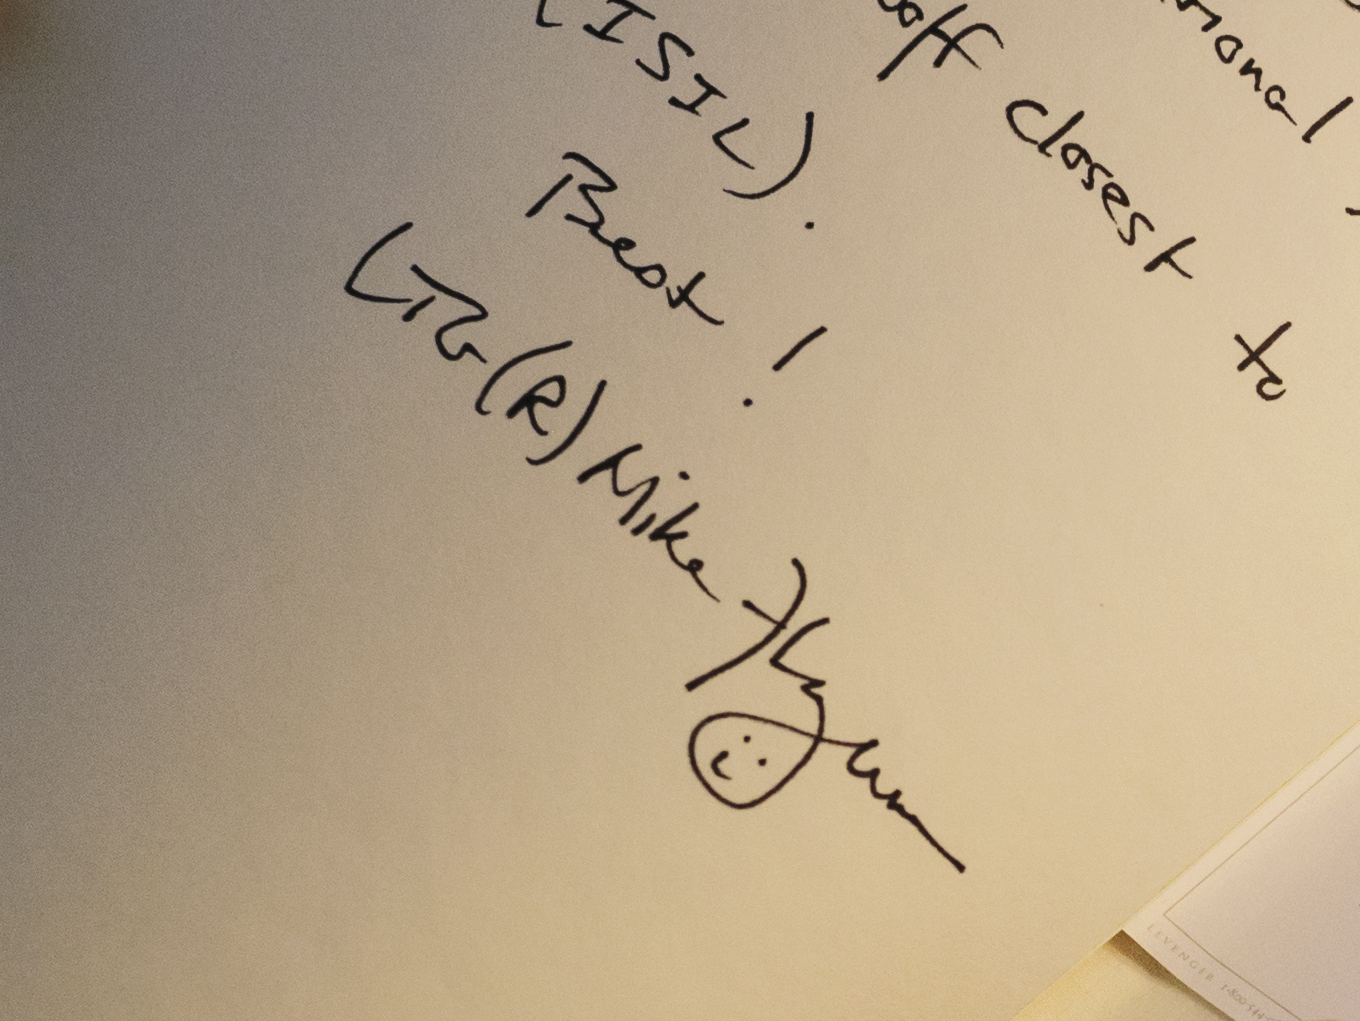 ional
off closest to
(ISIL).
Best!
LTG(R) Mike Flynn
LEVENGER 1-800-544